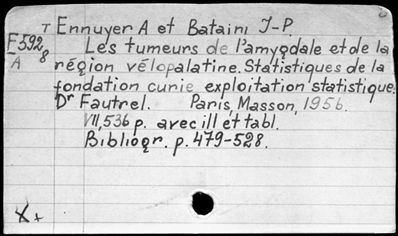 T Ennuyer A et Bataini J-P.
F592 8 Les tumeurs de l'amygdale et de la
A région vélopalatine. Statistiques de la
fondation curie exploitation statistique.
Dr Fautrel. Paris, Masson, 1956.
VII, 536 p. avec ill et tabl.
Bibliogr. p. 479-528.
X +